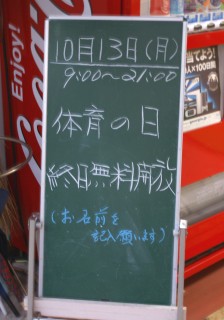 10月13日(月)
9:00〜21:00
体育の日
終日無料開放
(お名前を
記入願います)
Enjoy!
Coca
当てよう!
×100日間